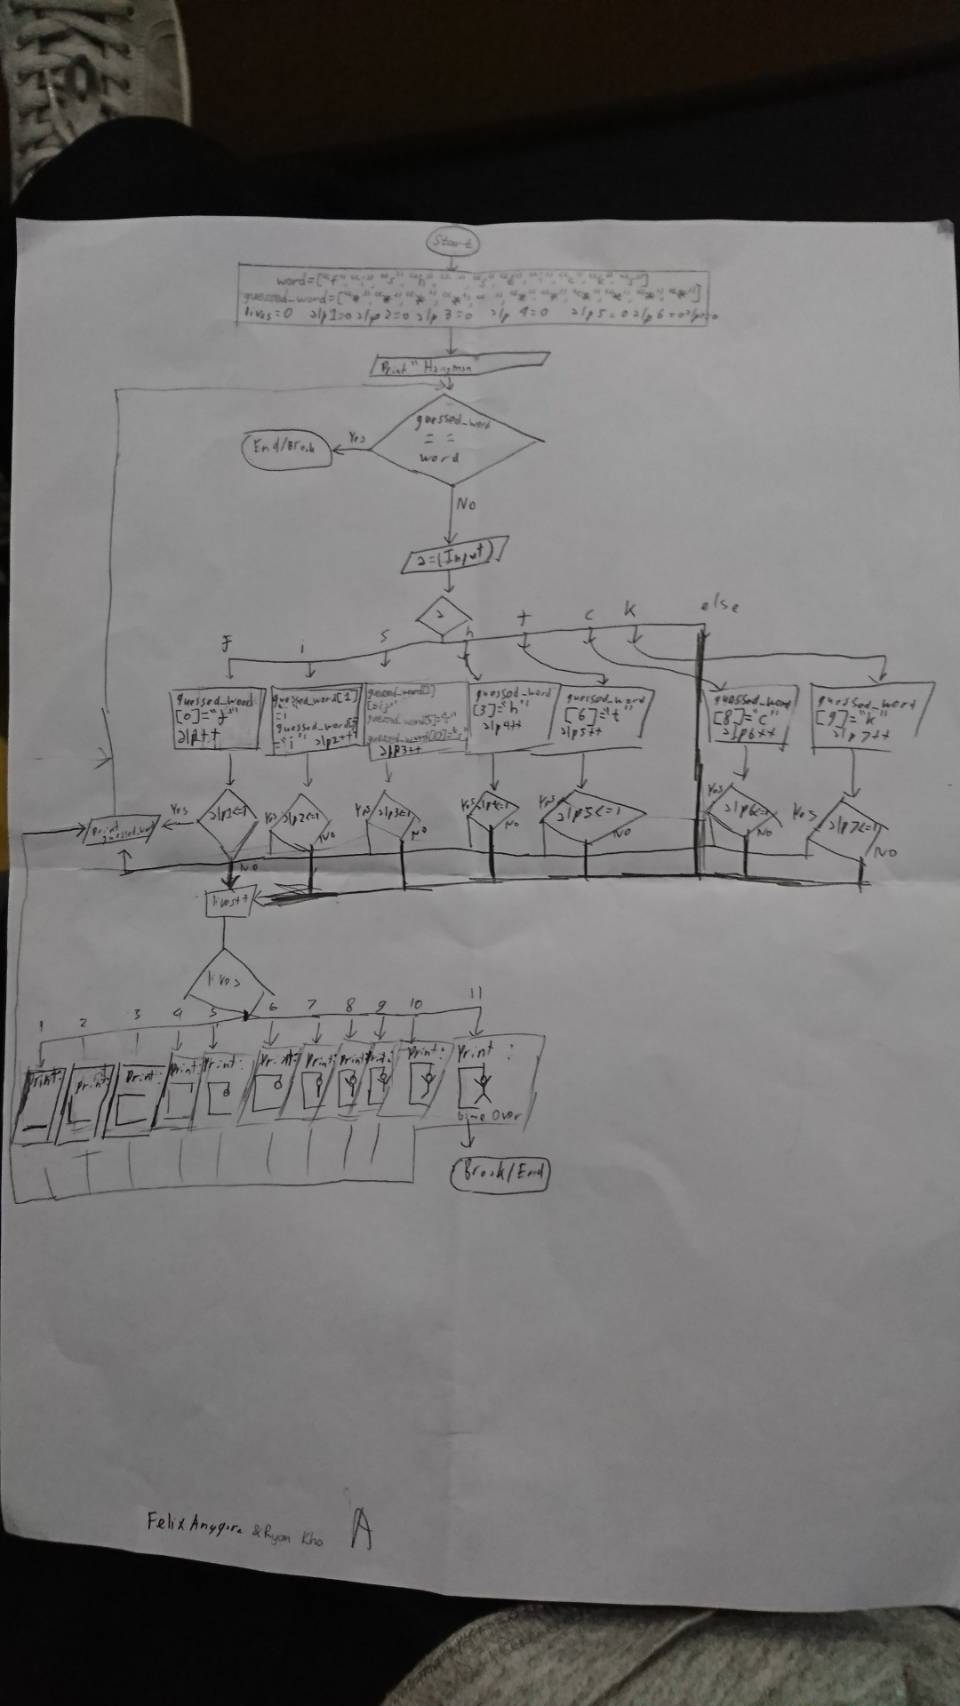 Start
word=["f","i","s","h"," ","s","t","i","c","k","s"]
guessed_word=["*","*","*","*"," ","*","*","*","*","*","*"]
lives=0 alp1=0 alp2=0 alp 3=0 alp 4=0 alp5=0 alp6=0
Print "Hangman"
guessed_word
==
word
Yes
End/Break
NO
a=(Input)
a
f i s h t c k else
guessed_word
[0]="f"
alp1++
guessed_word[1]
=i
guessed_word[7]
="i" alp2++
guessed_word[2]
guessed_word[5]="s"
guessed_word[10]="s"
alp3++
guessed_word
[3]="h"
alp4++
guessed_word
[6]="t"
alp5++
guessed_word
[8]="c"
alp6++
guessed_word
[9]="k"
alp7++
Print
guessed_word
Yes
alp1<=1
NO
Yes
alp2<=1
NO
Yes
alp3<=1
NO
Yes
alp4<=1
NO
Yes
alp5<=1
NO
Yes
alp6<=1
NO
Yes
alp7<=1
NO
lives++
lives
1 2 3 4 5 6 7 8 9 10 11
Print: Print: Print: Print: Print: Print: Print: Print: Print: Print: Print :
Game Over
Break/End
Felix Anggara & Ryan Kho A